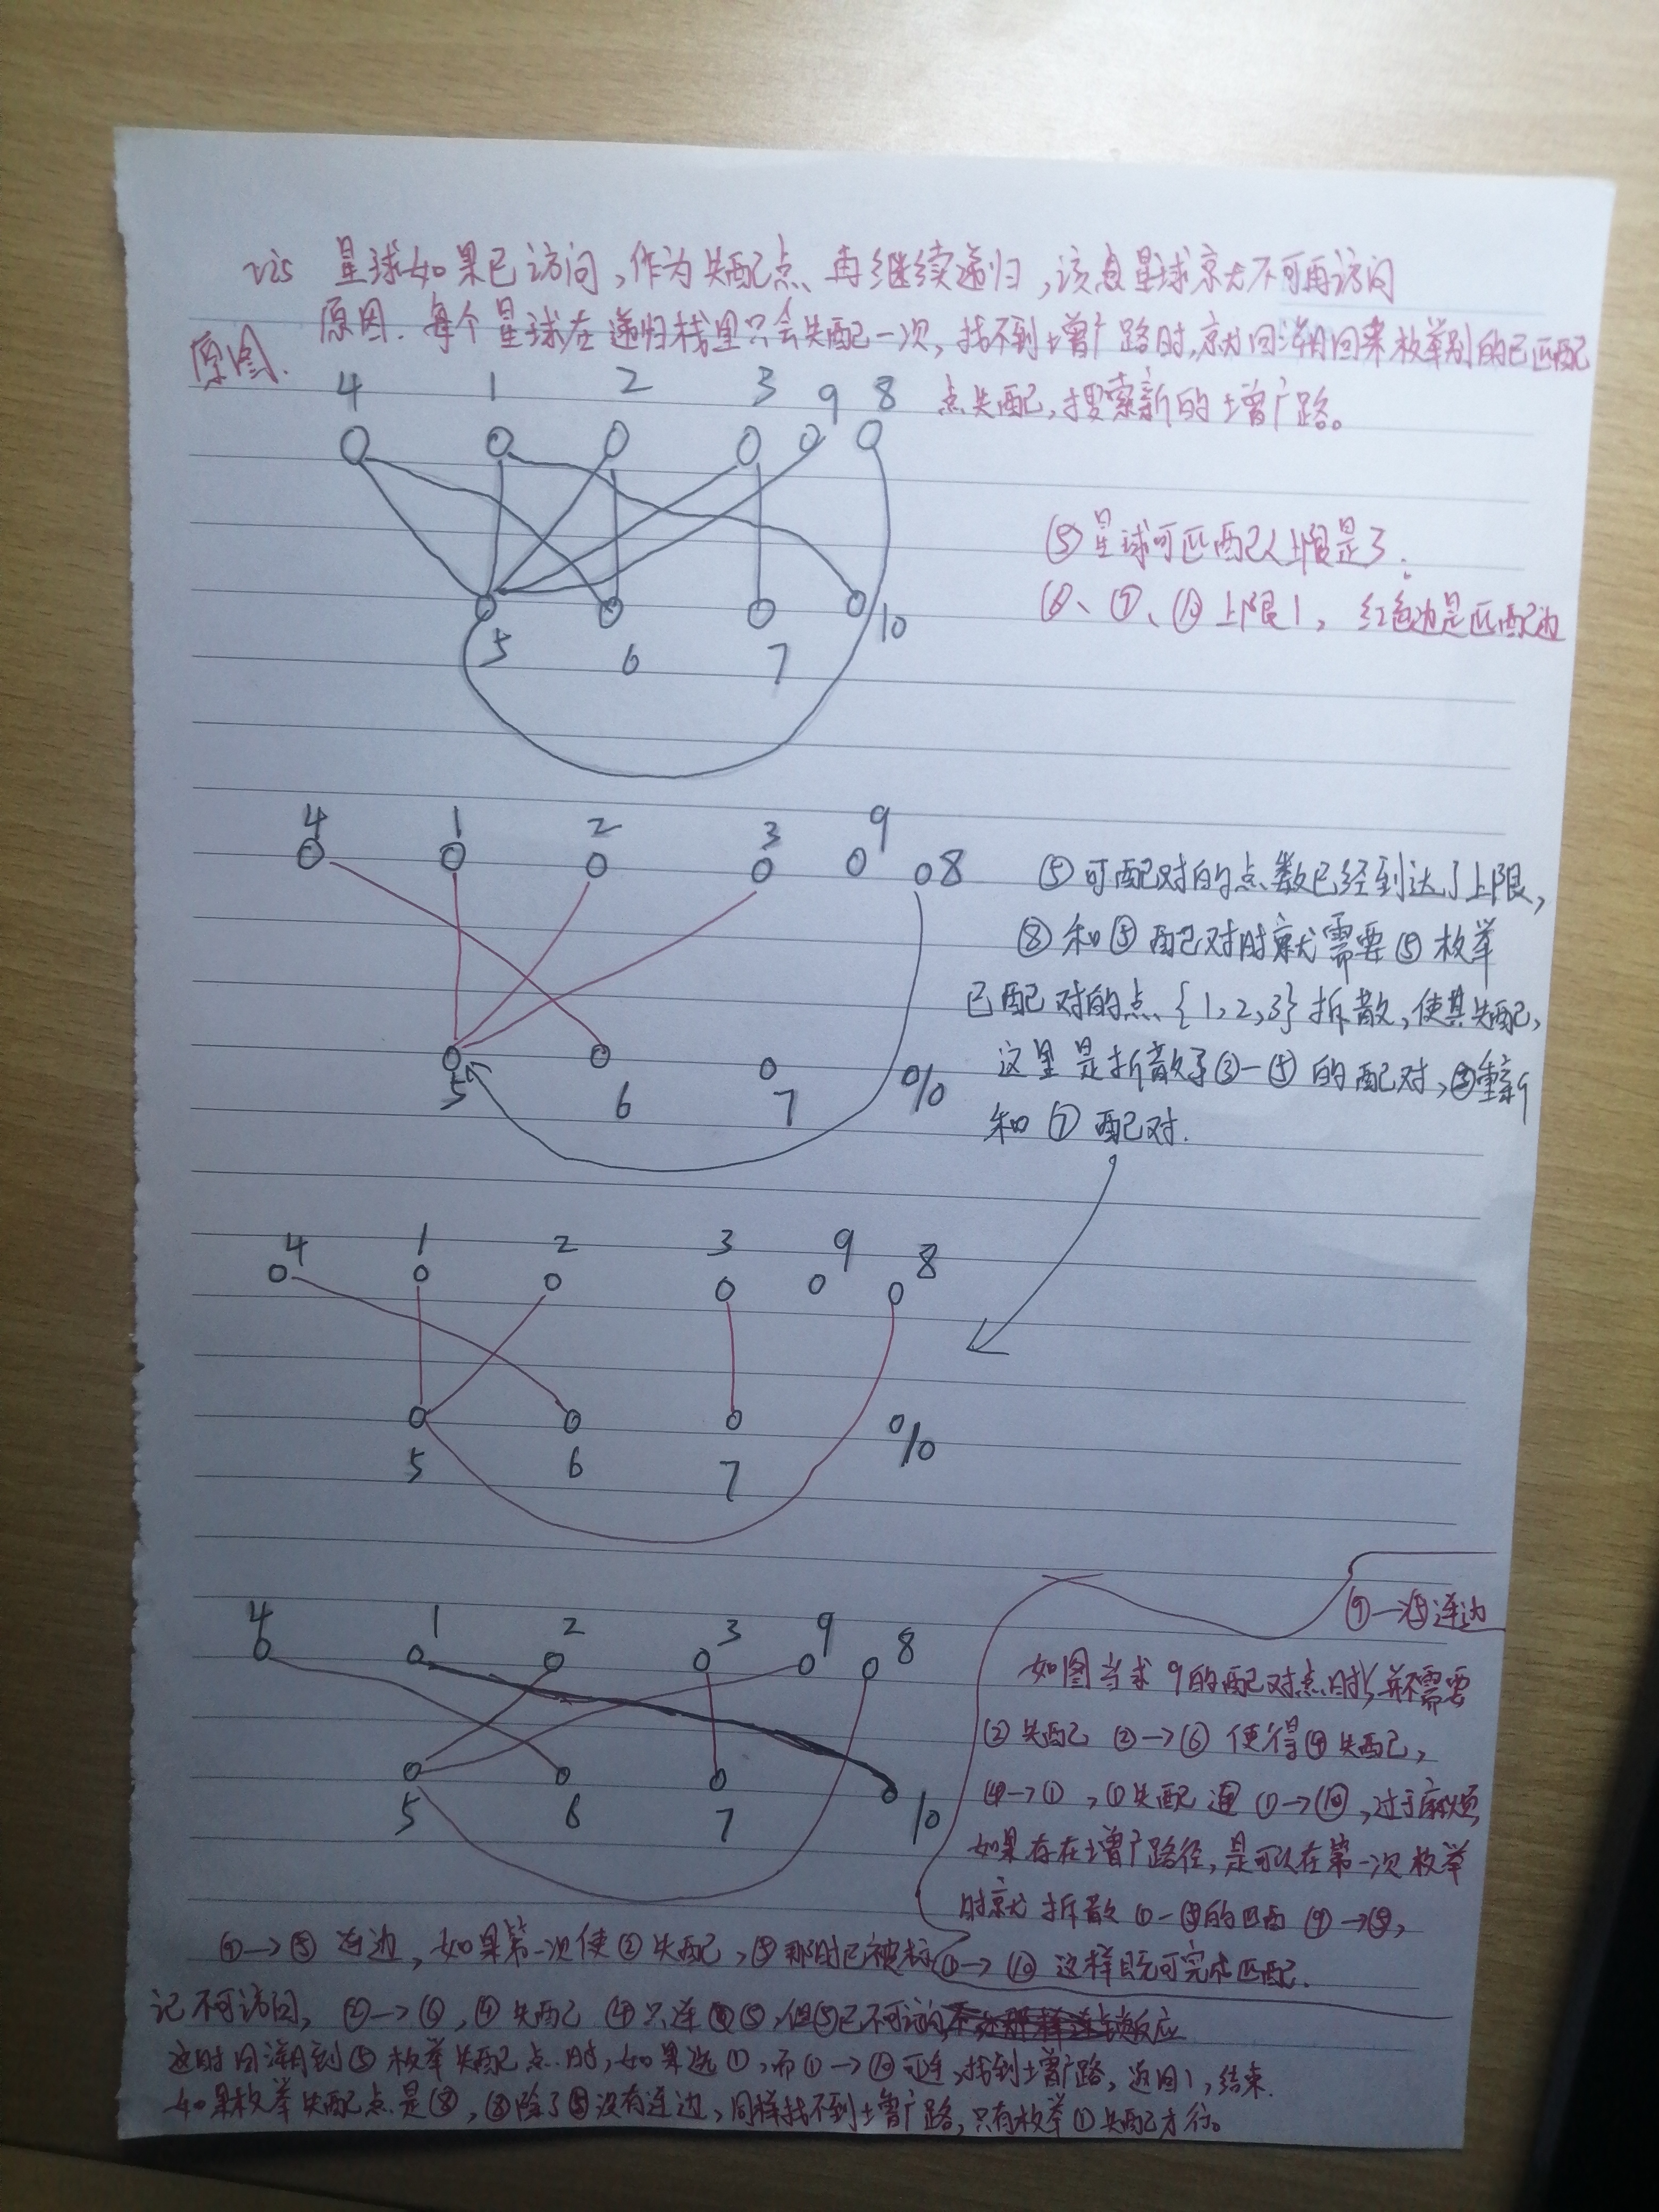 vis 星球如果已访问,作为失配点、再继续递归,该点星球就不可再访问
原因.每个星球在递归栈里只会失配一次,找不到增广路时,就回溯回来枚举别的已匹配
原图.
点失配,搜索新的增广路。
4 1 2 3 9 8
⑤星球可匹配人上限是3.
⑥、⑦、⑩上限1, 红色边是匹配边
5 6 7 10
4 1 2 3 9 8
⑤可配对的点数已经到达了上限,
⑧和⑤配对时就需要⑤枚举
已配对的点、{1,2,3}拆散,使其失配,
这里是拆散了③-⑤的配对,③重新
和⑦配对.
5 6 7 10
4 1 2 3 9 8
5 6 7 10
⑨→⑤连边
4 1 2 3 9 8
如图当求9的配对点时,并不需要
②失配 ②→⑥ 使得④失配,
④→①,①失配 ①→⑩,过于麻烦
如果存在增广路径,是可以在第一次枚举
时就拆散①-⑤的匹配 ⑨→⑤,
①→⑩ 这样既可完成匹配.
5 6 7 10
⑨→⑤ 连边,如果第一次使②失配,⑤那时已被标
记不可访问, ②→⑥,④失配 ④只连⑤,但⑤已不可访问
这时回溯到⑤枚举失配点时,如果选①,而①→⑩可连,找到增广路,返回1,结束.
如果枚举失配点是⑧,⑧除了⑤没有连边,同样找不到增广路,只有枚举①失配才行。